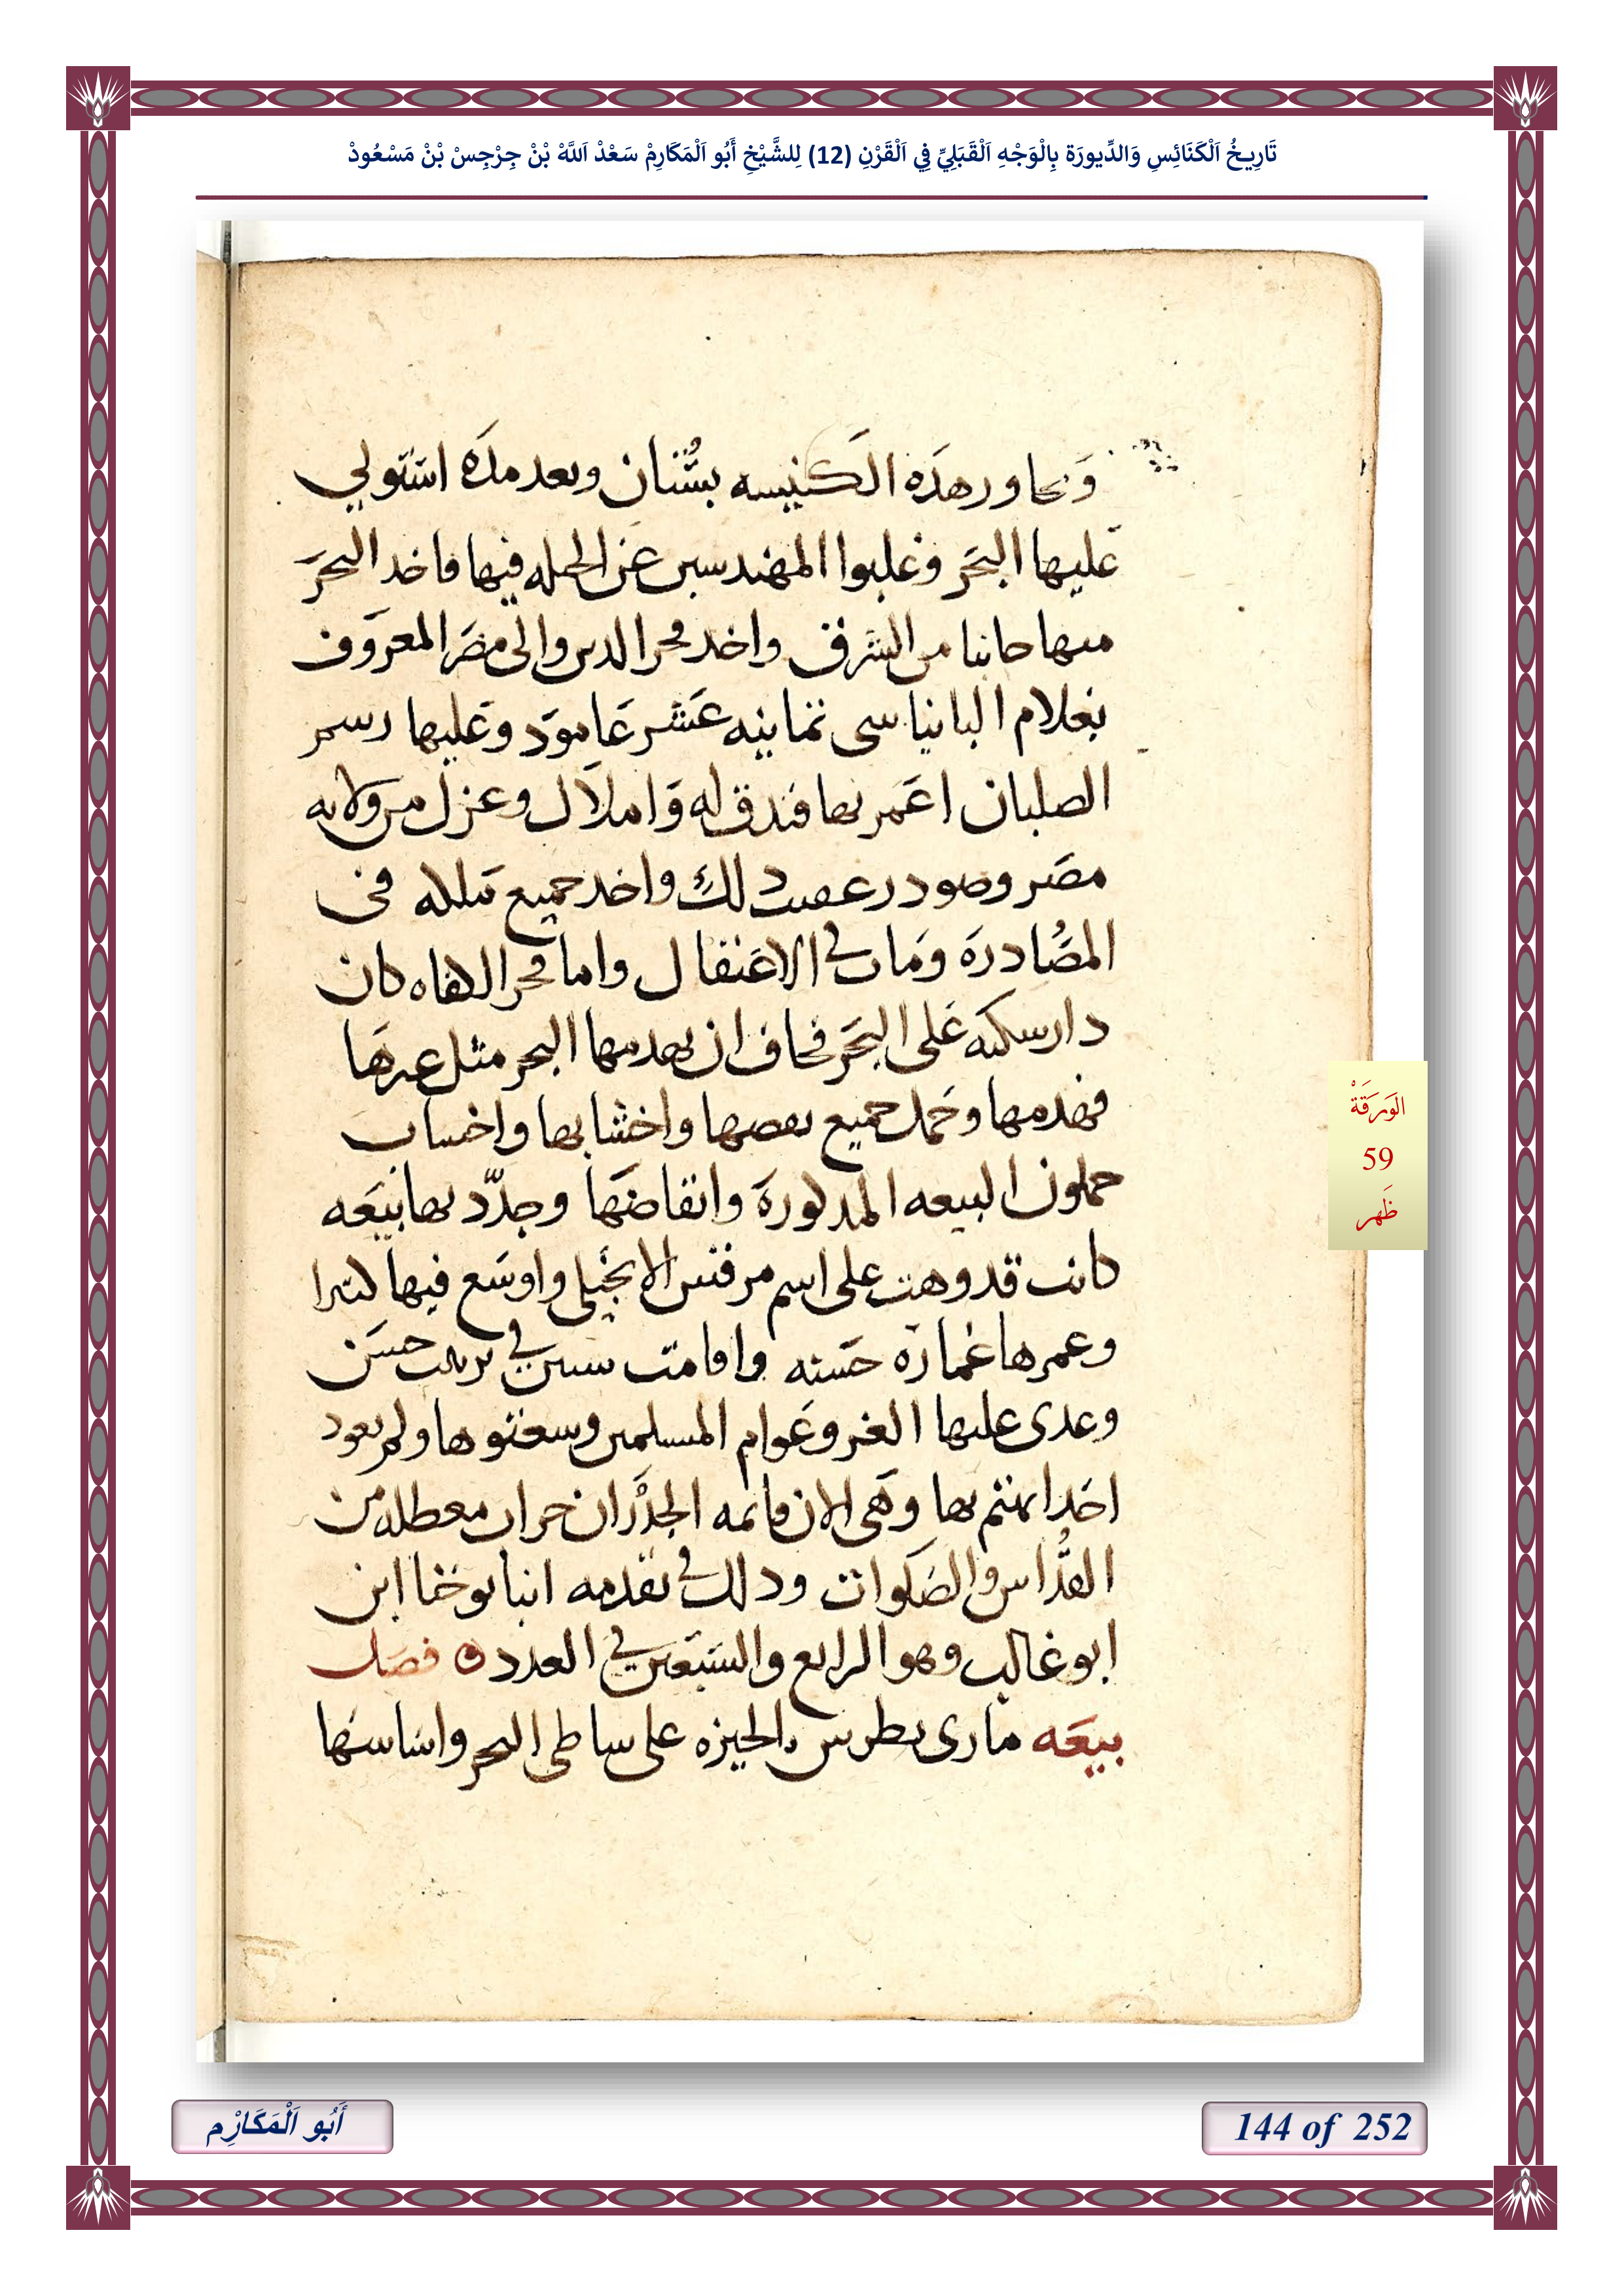 تَارِيخُ اَلْكَنَائِسِ وَالدِّيورَة بِالْوَجْهِ اَلْقَبَلِيِّ فِي اَلْقَرْنِ (12) لِلشَّيْخِ أَبُو اَلْمَكَارِمْ سَعْدْ اَللَّهْ بْنْ جِرْجِسْ بْنْ مَسْعُودْ
وَيجاور هذه الكنيسه بستان وبعد مده استولي
عليها البحر وغلبوا المهندسين عن الحيله فيها فاخد البحر
منها جانبا من الشرق واخد فخر الدين والى مصر المعروف
بغلام البانياسى ثمانيه عشر عامود وعليها رسم
الصلبان اعمر بها فندق له وَاملاك وعزل من ولايه
مصر وصودر عقيب دلك واخد جميع تملكه فى
المصادره ومات في الاعتقال واما فخر الكفاه كان
دار سكنه على البحر فخاف ان يهدمها البحر مثل غيرها
فهدمها وحمل جميع نقضها واخشابها واخشاب
حملون البيعه المدكوره وانقاضها وجدّد بها بيعه
كانت قد وهت على اسم مرقس الانجيلي واوسع فيها كثيرا
وعمرها عماره حسنه واقامت سنين في ترتيب حسن
وعدى عليها الغز وعوام المسلمين وشعثوها ولم يعود
احدا يهتم بها وهى الان قايمه الجدران خراب معطله من
القُدّاس والصَلوات ودلك في تقدمه انبا يوحنا ابن
ابو غالب وهو الرابع والسبعين في العدد ۞ فصل
بيعه مارى بطرس بالجيزه على ساطى البحر واساسها
الوَرَقَةْ
59
ظَهر
أَبُو اَلْمَكَارِْم
144 of 252